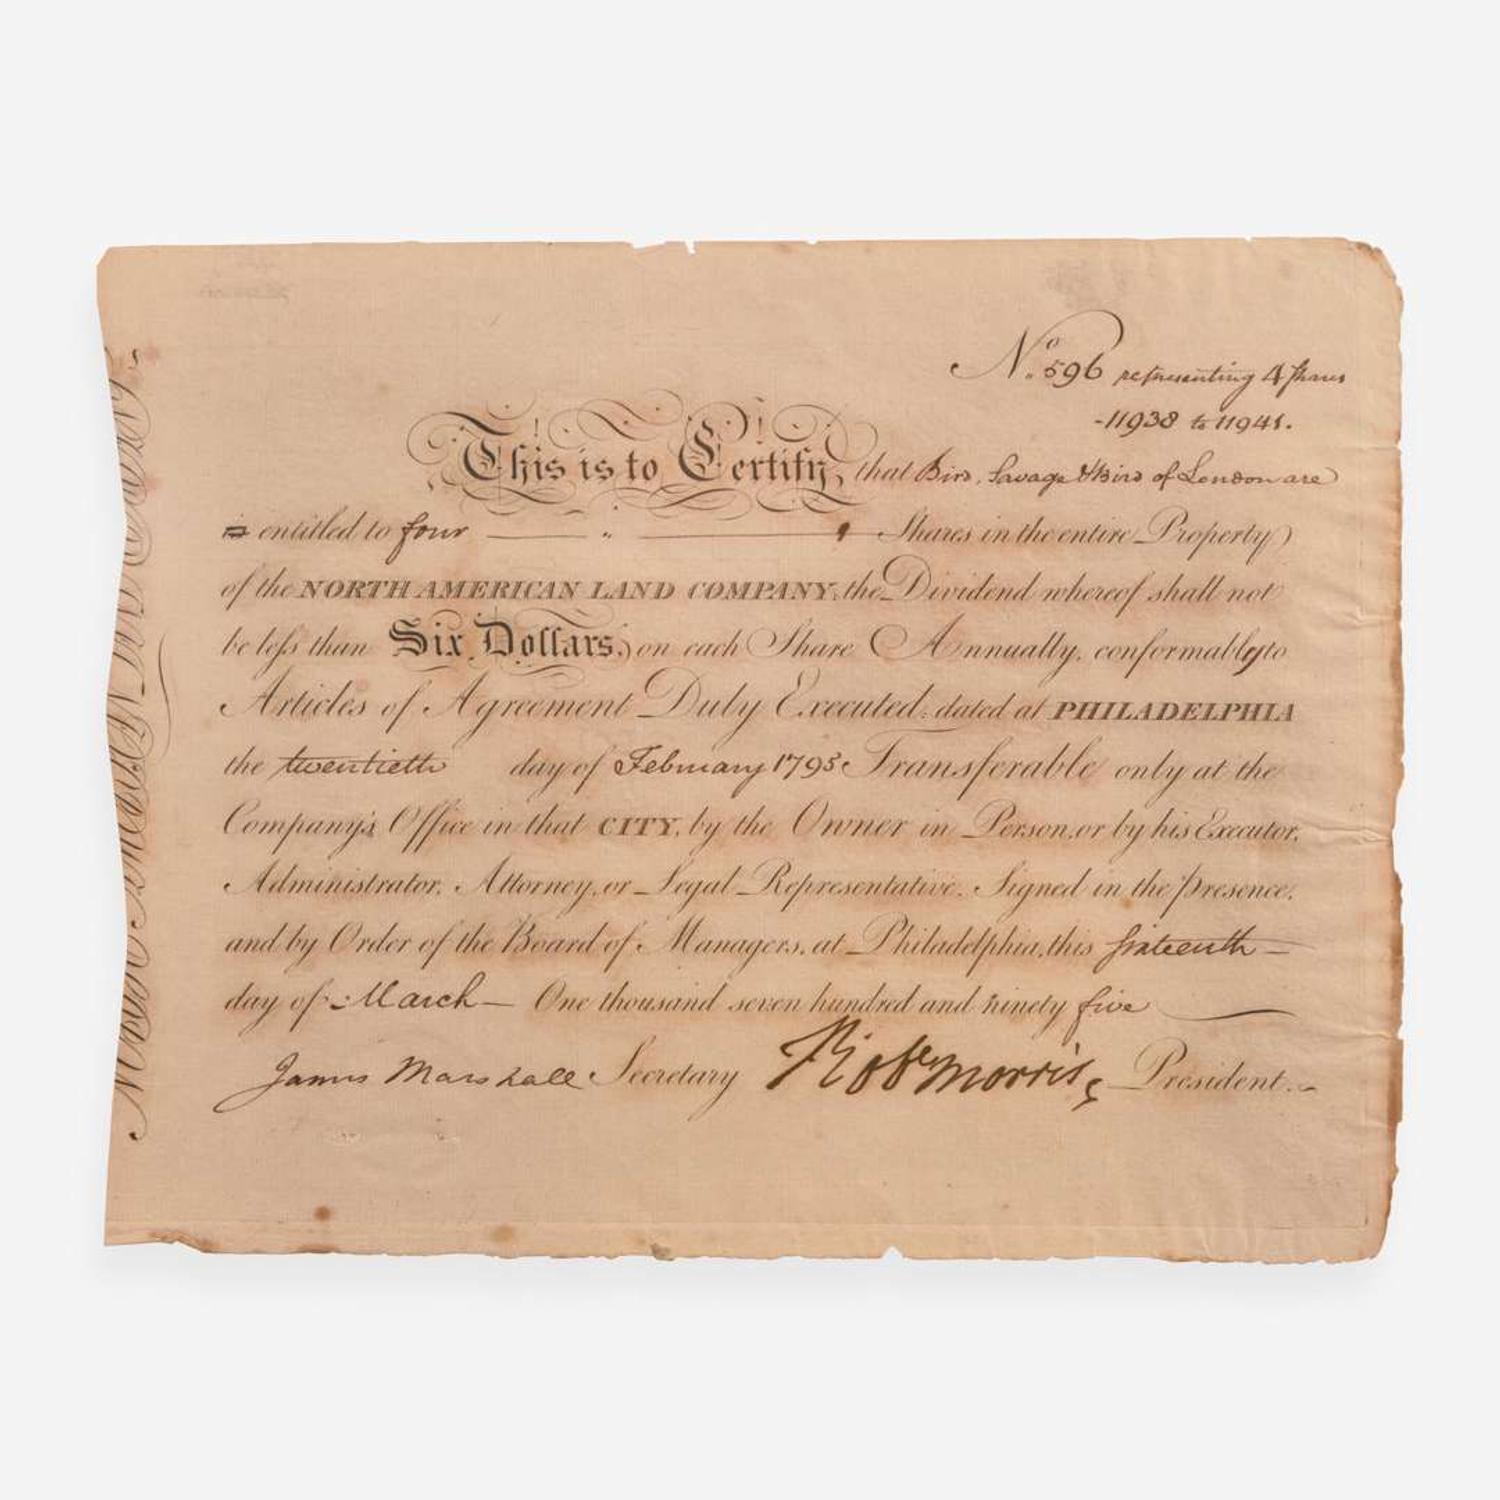 No. 596 representing 4 Shares
-11938 to 11941.
This is to Certify, that Bird, Savage & Bird of London are
is entitled to four Shares in the entire Property
of the NORTH AMERICAN LAND COMPANY, the Dividend whereof shall not
be less than Six Dollars, on each Share Annually, conformably to
Articles of Agreement Duly Executed; dated at PHILADELPHIA
the twentieth day of February 1795 Transferable only at the
Company's Office in that CITY, by the Owner in Person, or by his Executor,
Administrator, Attorney, or Legal Representative. Signed in the presence,
and by Order of the Board of Managers, at Philadelphia, this sixteenth
day of March One thousand seven hundred and ninety five
James Marshall Secretary Robt Morris, President.